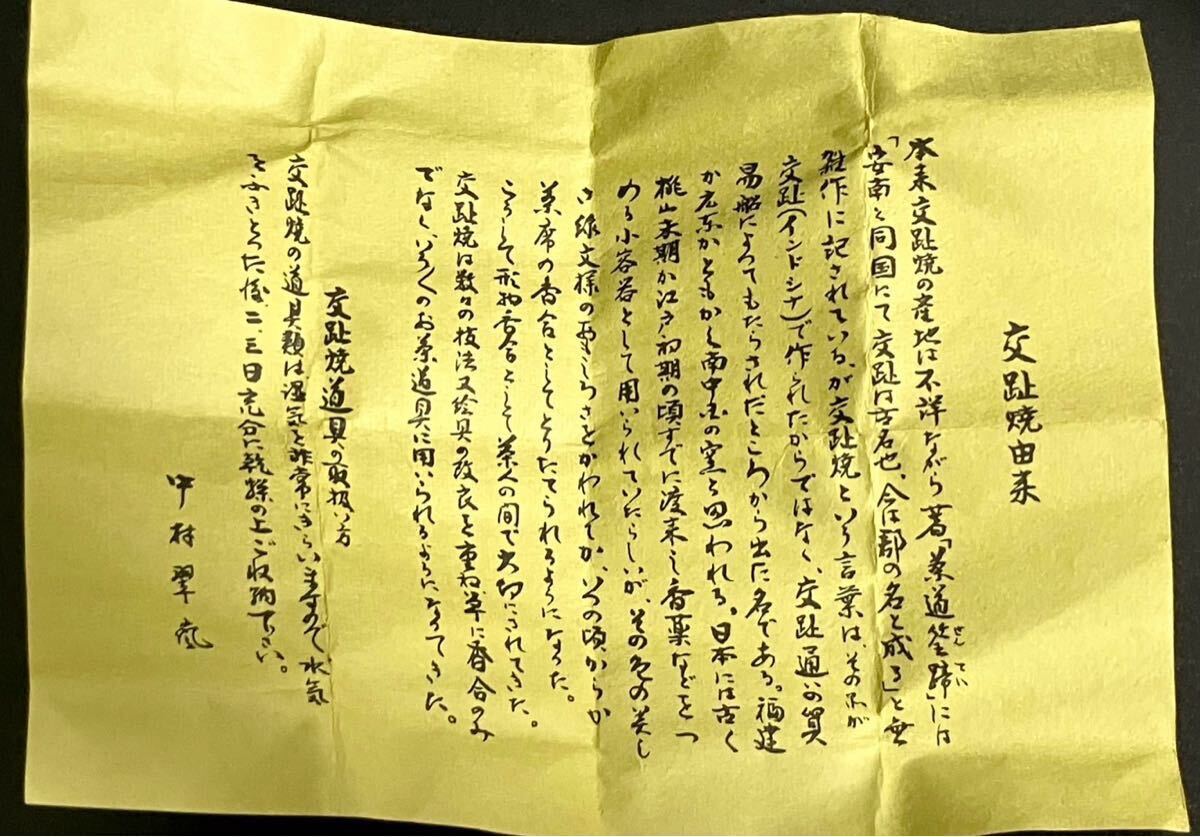 交趾焼由来
本来交趾焼の産地は不詳ながら著「茶道筌蹄」には
せんてい
「安南と同国にて交趾は古名也、今は郡の名と成る」と無
雑作に記されている、が交趾焼という言葉は、その品が
交趾(インドシナ)で作られたからではなく、交趾通いの貿
易船によってもたらされたところから出た名である。福建
か広東かともかく南中国の窯と思われる。日本には古く
桃山末期か江戸初期の頃すでに渡来し香薬などをつ
める小容器として用いられていたらしいが、その色の美し
さ線文様の面白さをかわれてか、いつの頃からか
茶席の香合としてとりたてられるようになった。
こうして形物香合として茶人の間で大切にされてきた。
交趾焼は数々の技法又絵具の改良を重ね、単に香合のみ
でなく、いろいろのお茶道具に用いられるようになってきた。
交趾焼道具の取扱い方
交趾焼の道具類は湿気を非常にきらいますので、水気
をふきとった後、二、三日充分に乾燥の上ご収納下さい。
中村翠嵐